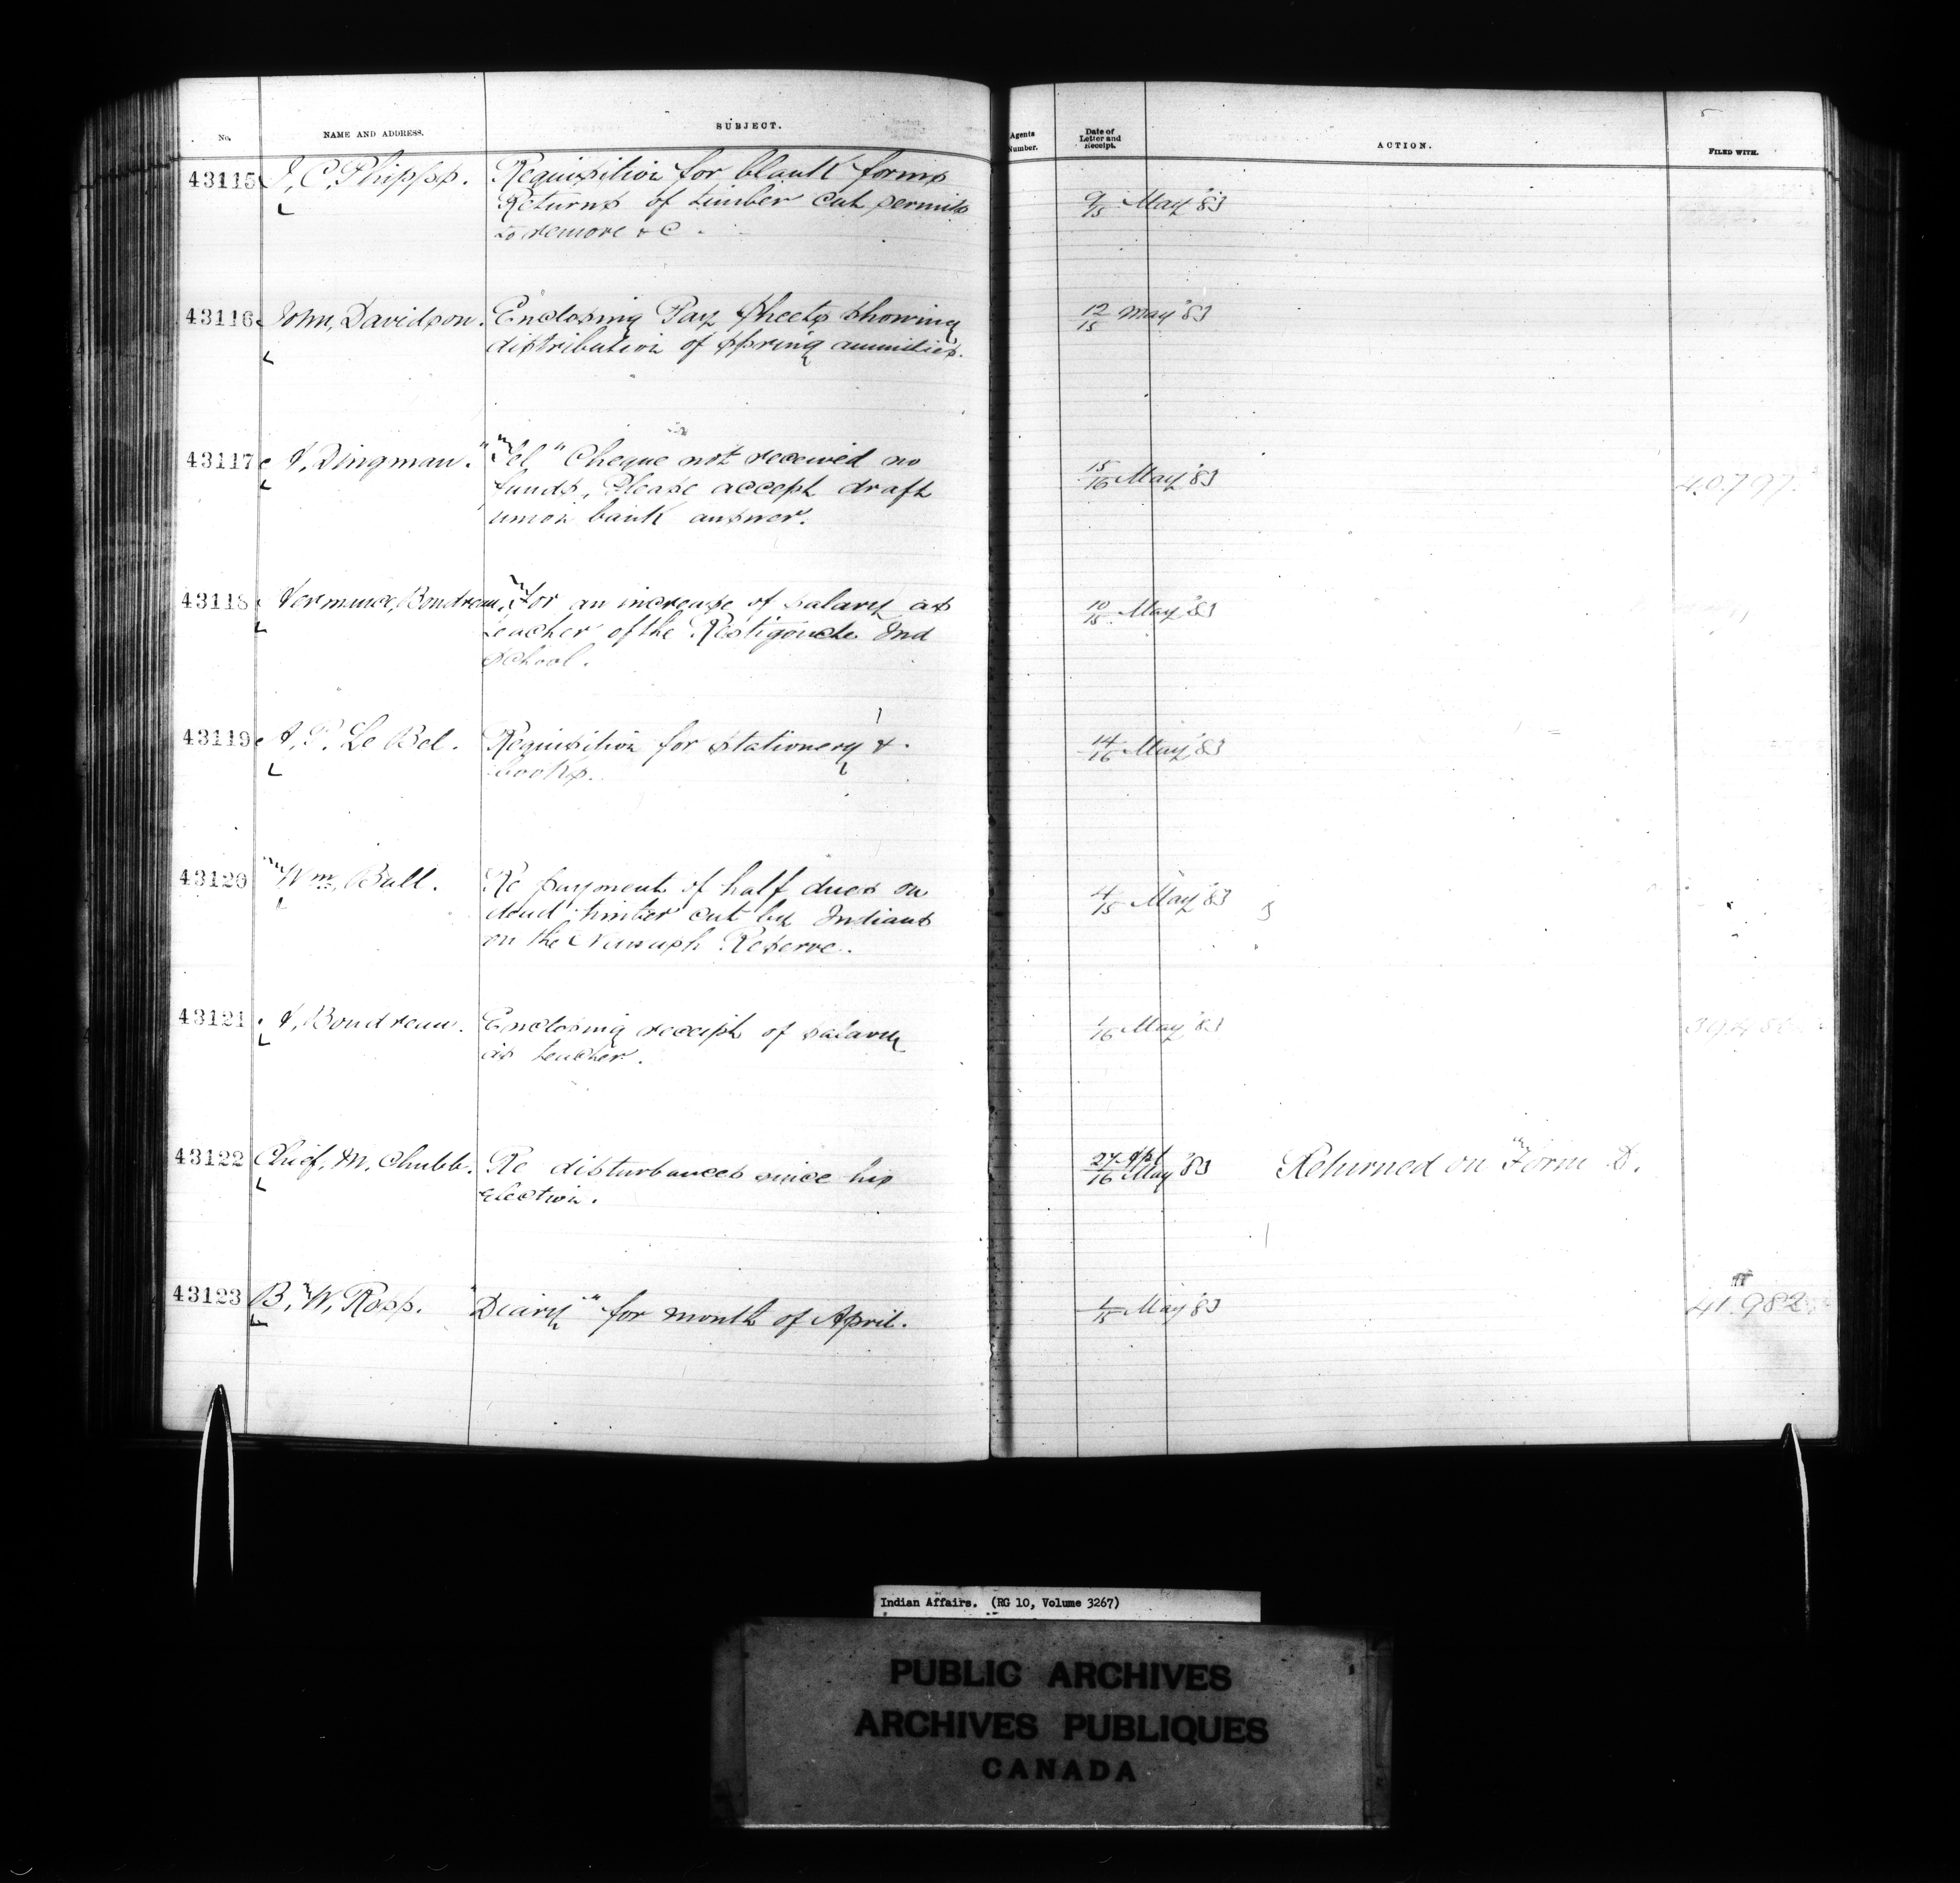 5
No. NAME AND ADDRESS. SUBJECT. Agents Number. Date of Letter and Receipt. ACTION. FILED WITH.
43115 J, C, Phipps. Requisition for blank forms
Returns of timber cut permits 9/15 May '83
to remove & C.
43116 John, Davidson. Enclosing Pay Sheets showing 12/15 May '83
distribution of spring annuities.
43117 Dingman. "Tel" Cheque not received no
funds, Please accept draft 15/16 May '83
union bank answer.
43118 For an increase of salary as 10/15 May '83
teacher of the Restigouche Ind
School.
43119 A, P. Le Bel. Requisition for stationery & 14/16 May '83
books.
43120 Wm, Bull. Re payment of half dues on
dead timber cut by Indians 4/15 May '83
on the Reserve.
43121 Boudreau. Enclosing receipt of salary 1/16 May '83
as teacher.
43122 Chief, M, Chubb. Re disturbances since his 27 Apl/16 May '83 Returned on Form D.
election.
43123 B, W, Ross. "Diary" for month of April. 1/15 May '83 41.982
Indian Affairs. (RG 10, Volume 3267)
PUBLIC ARCHIVES
ARCHIVES PUBLIQUES
CANADA